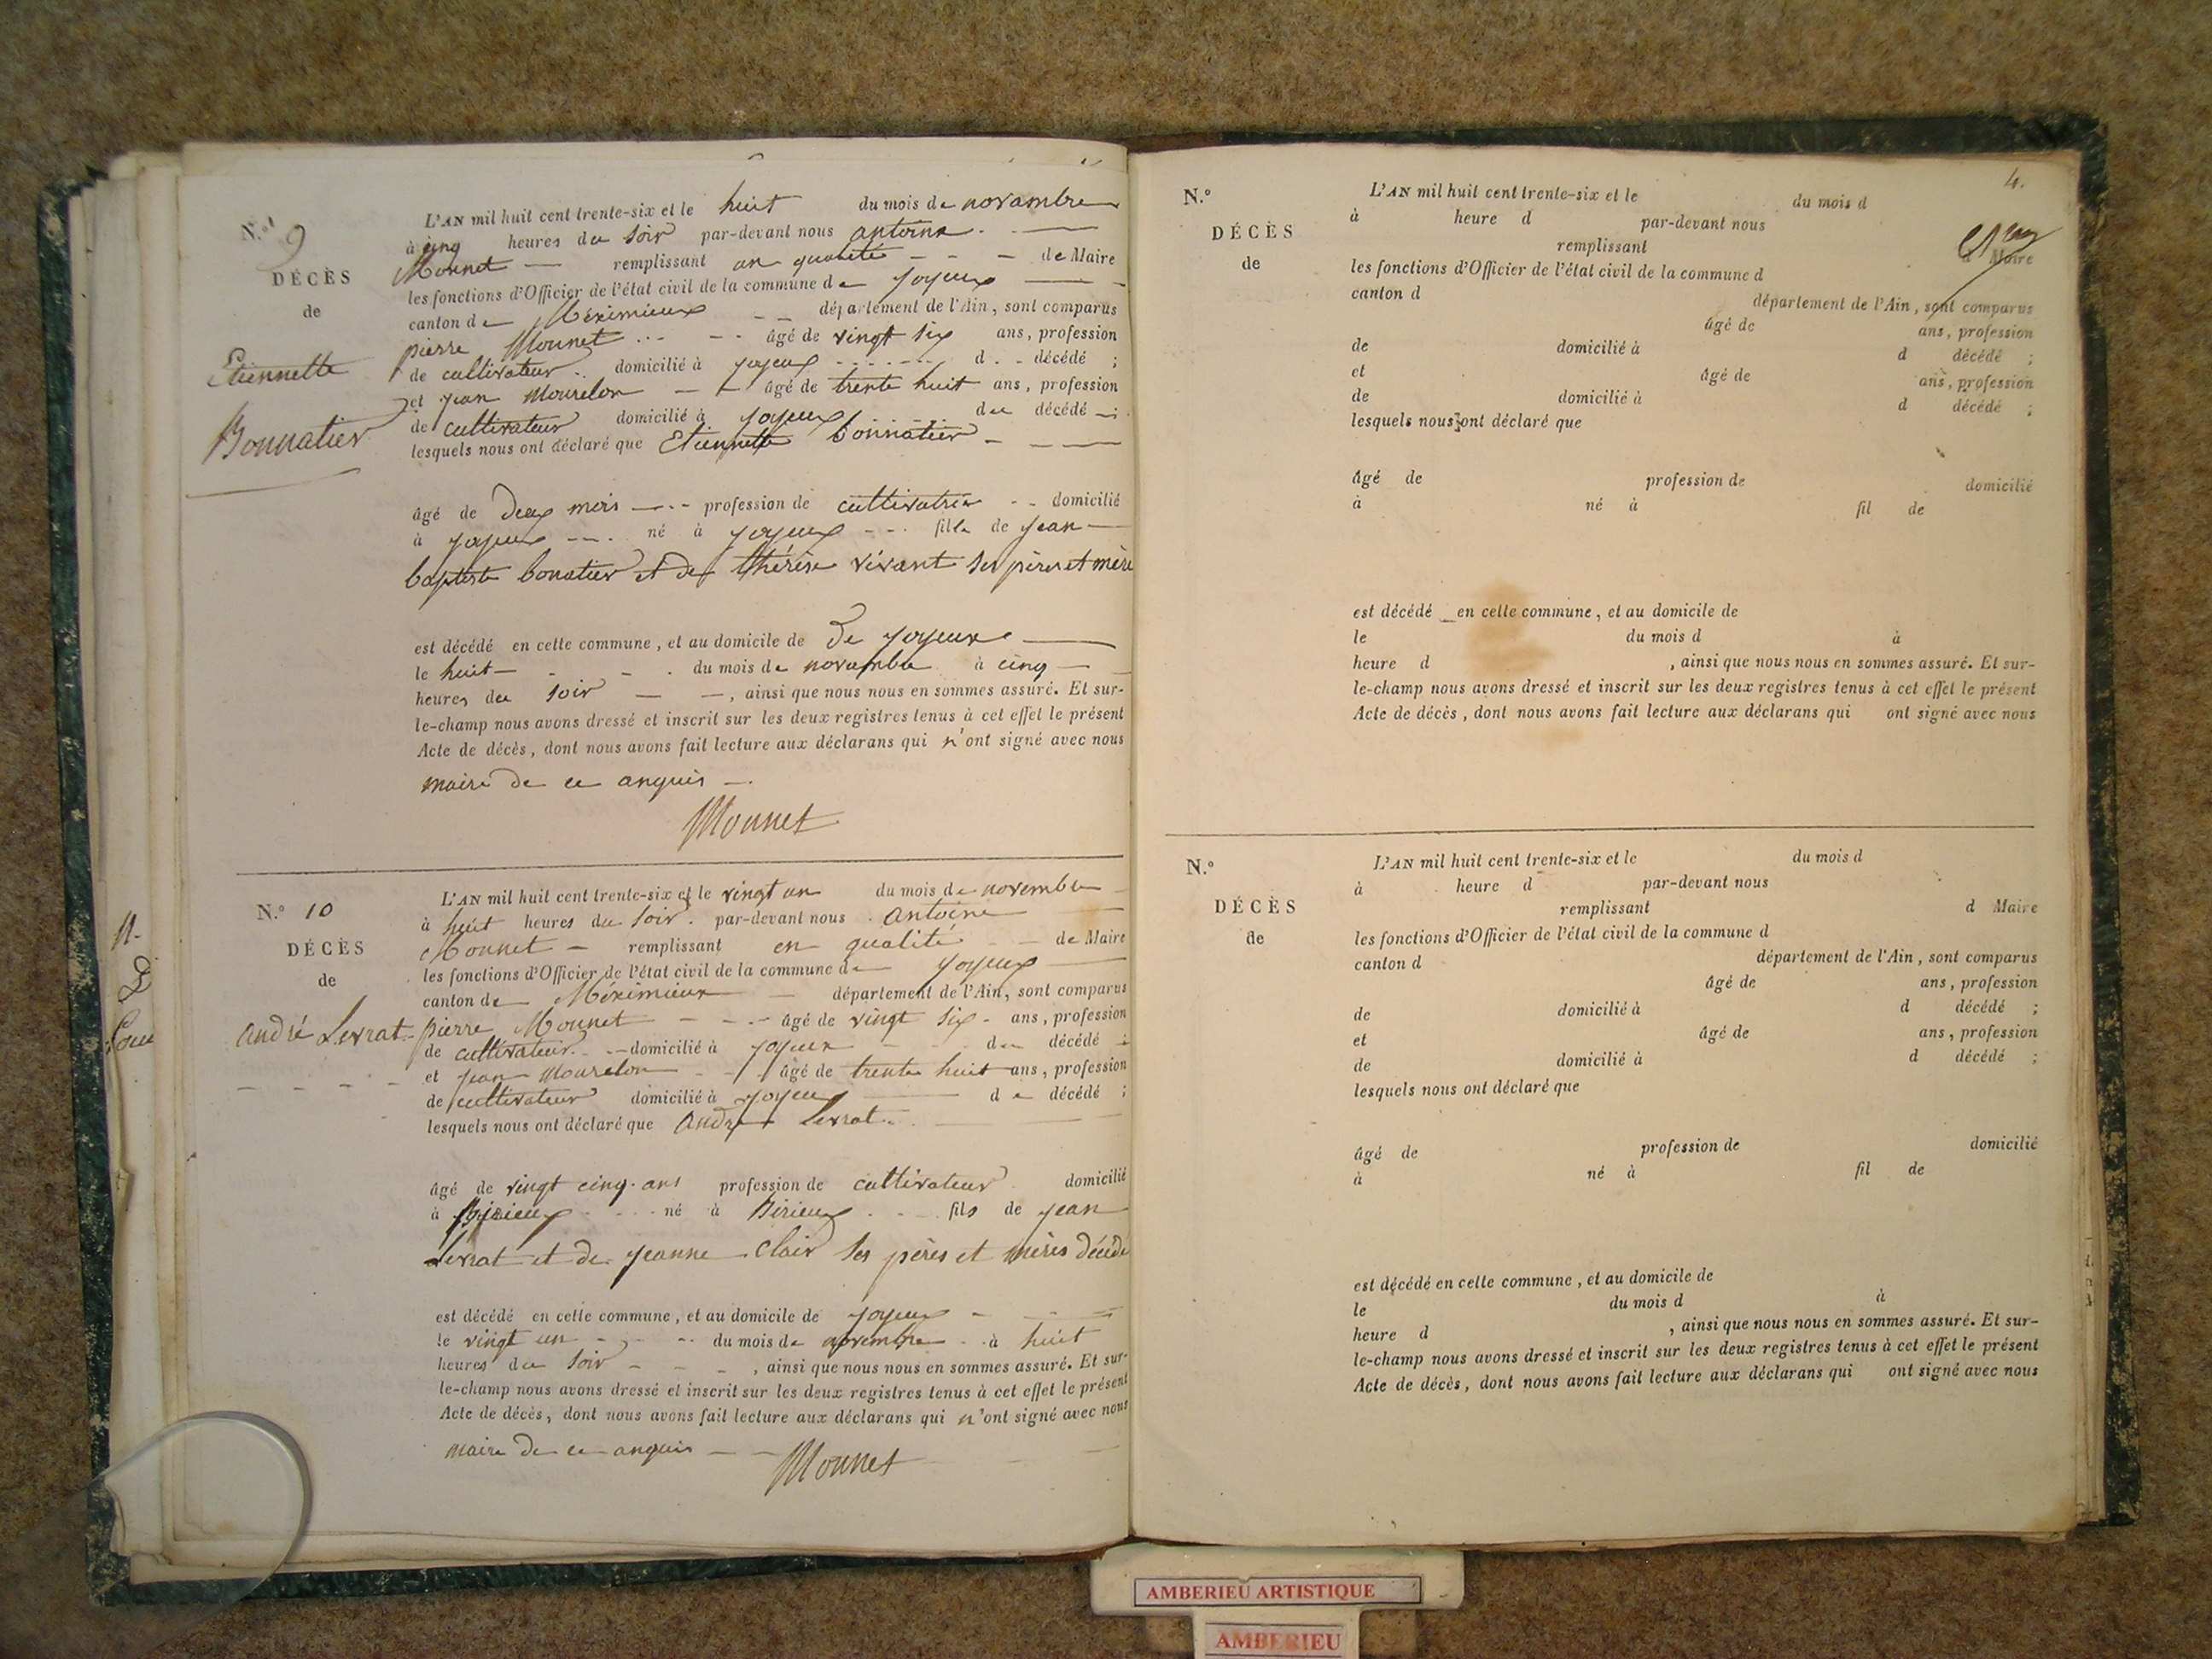 N.° 9
DÉCÈS
de
Etiennette
Bonnatier
L'AN mil huit cent trente-six et le huit du mois de novambre
à cinq heures du soir par-devant nous antoine
Monnet remplissant en qualité de Maire
les fonctions d'Officier de l'état civil de la commune de joyeux
canton de Méximieux département de l'Ain, sont comparus
pierre Monnet âgé de vingt six ans, profession
de cultivateur domicilié à joyeux d décédé ;
et jean Mourelon âgé de trente huit ans, profession
de cultivateur domicilié à joyeux du décédé ;
lesquels nous ont déclaré que Etiennette bonnatier
âgé de deux mois profession de cultivatrice domicilié
à joyeux né à joyeux fille de jean
baptiste bonatier et de thérèse vivant ses pères et mère
est décédé en cette commune, et au domicile de De joyeux
le huit du mois de novembre à cinq
heures du soir , ainsi que nous nous en sommes assuré. Et sur-
le-champ nous avons dressé et inscrit sur les deux registres tenus à cet effet le présent
Acte de décès, dont nous avons fait lecture aux déclarans qui n'ont signé avec nous
maire de ce anquis
Monnet
N.° 10
DÉCÈS
de
andré Levrat
L'AN mil huit cent trente-six et le vingt un du mois de novembre
à huit heures du soir par-devant nous antoine
Monnet remplissant en qualité de Maire
les fonctions d'Officier de l'état civil de la commune de joyeux
canton de Méximieux département de l'Ain, sont comparus
pierre Monnet âgé de vingt six ans, profession
de cultivateur domicilié à joyeux du décédé ;
et jean Mourelon âgé de trente huit ans, profession
de cultivateur domicilié à joyeux de décédé ;
lesquels nous ont déclaré que andré Levrat
âgé de vingt cinq ans profession de cultivateur domicilié
à Birieux né à Birieux fils de jean
Levrat et de jeanne Clair ses pères et mères décédé
est décédé en cette commune, et au domicile de joyeux
le vingt un du mois de novembre à huit
heures du soir , ainsi que nous nous en sommes assuré. Et sur-
le-champ nous avons dressé et inscrit sur les deux registres tenus à cet effet le présent
Acte de décès, dont nous avons fait lecture aux déclarans qui n'ont signé avec nous
maire de ce anquis
Monnet
4.
N.°
DÉCÈS
de
L'AN mil huit cent trente-six et le du mois d
à heure d par-devant nous
remplissant d Maire
les fonctions d'Officier de l'état civil de la commune d
canton d département de l'Ain, sont comparus
âgé de ans, profession
de domicilié à d décédé ;
et âgé de ans, profession
de domicilié à d décédé ;
lesquels nous ont déclaré que
âgé de profession de domicilié
à né à fil de
est décédé en cette commune, et au domicile de
le du mois d à
heure d , ainsi que nous nous en sommes assuré. Et sur-
le-champ nous avons dressé et inscrit sur les deux registres tenus à cet effet le présent
Acte de décès, dont nous avons fait lecture aux déclarans qui ont signé avec nous
N.°
DÉCÈS
de
L'AN mil huit cent trente-six et le du mois d
à heure d par-devant nous
remplissant d Maire
les fonctions d'Officier de l'état civil de la commune d
canton d département de l'Ain, sont comparus
âgé de ans, profession
de domicilié à d décédé ;
et âgé de ans, profession
de domicilié à d décédé ;
lesquels nous ont déclaré que
âgé de profession de domicilié
à né à fil de
est décédé en cette commune, et au domicile de
le du mois d à
heure d , ainsi que nous nous en sommes assuré. Et sur-
le-champ nous avons dressé et inscrit sur les deux registres tenus à cet effet le présent
Acte de décès, dont nous avons fait lecture aux déclarans qui ont signé avec nous
AMBERIEU ARTISTIQUE
AMBERIEU